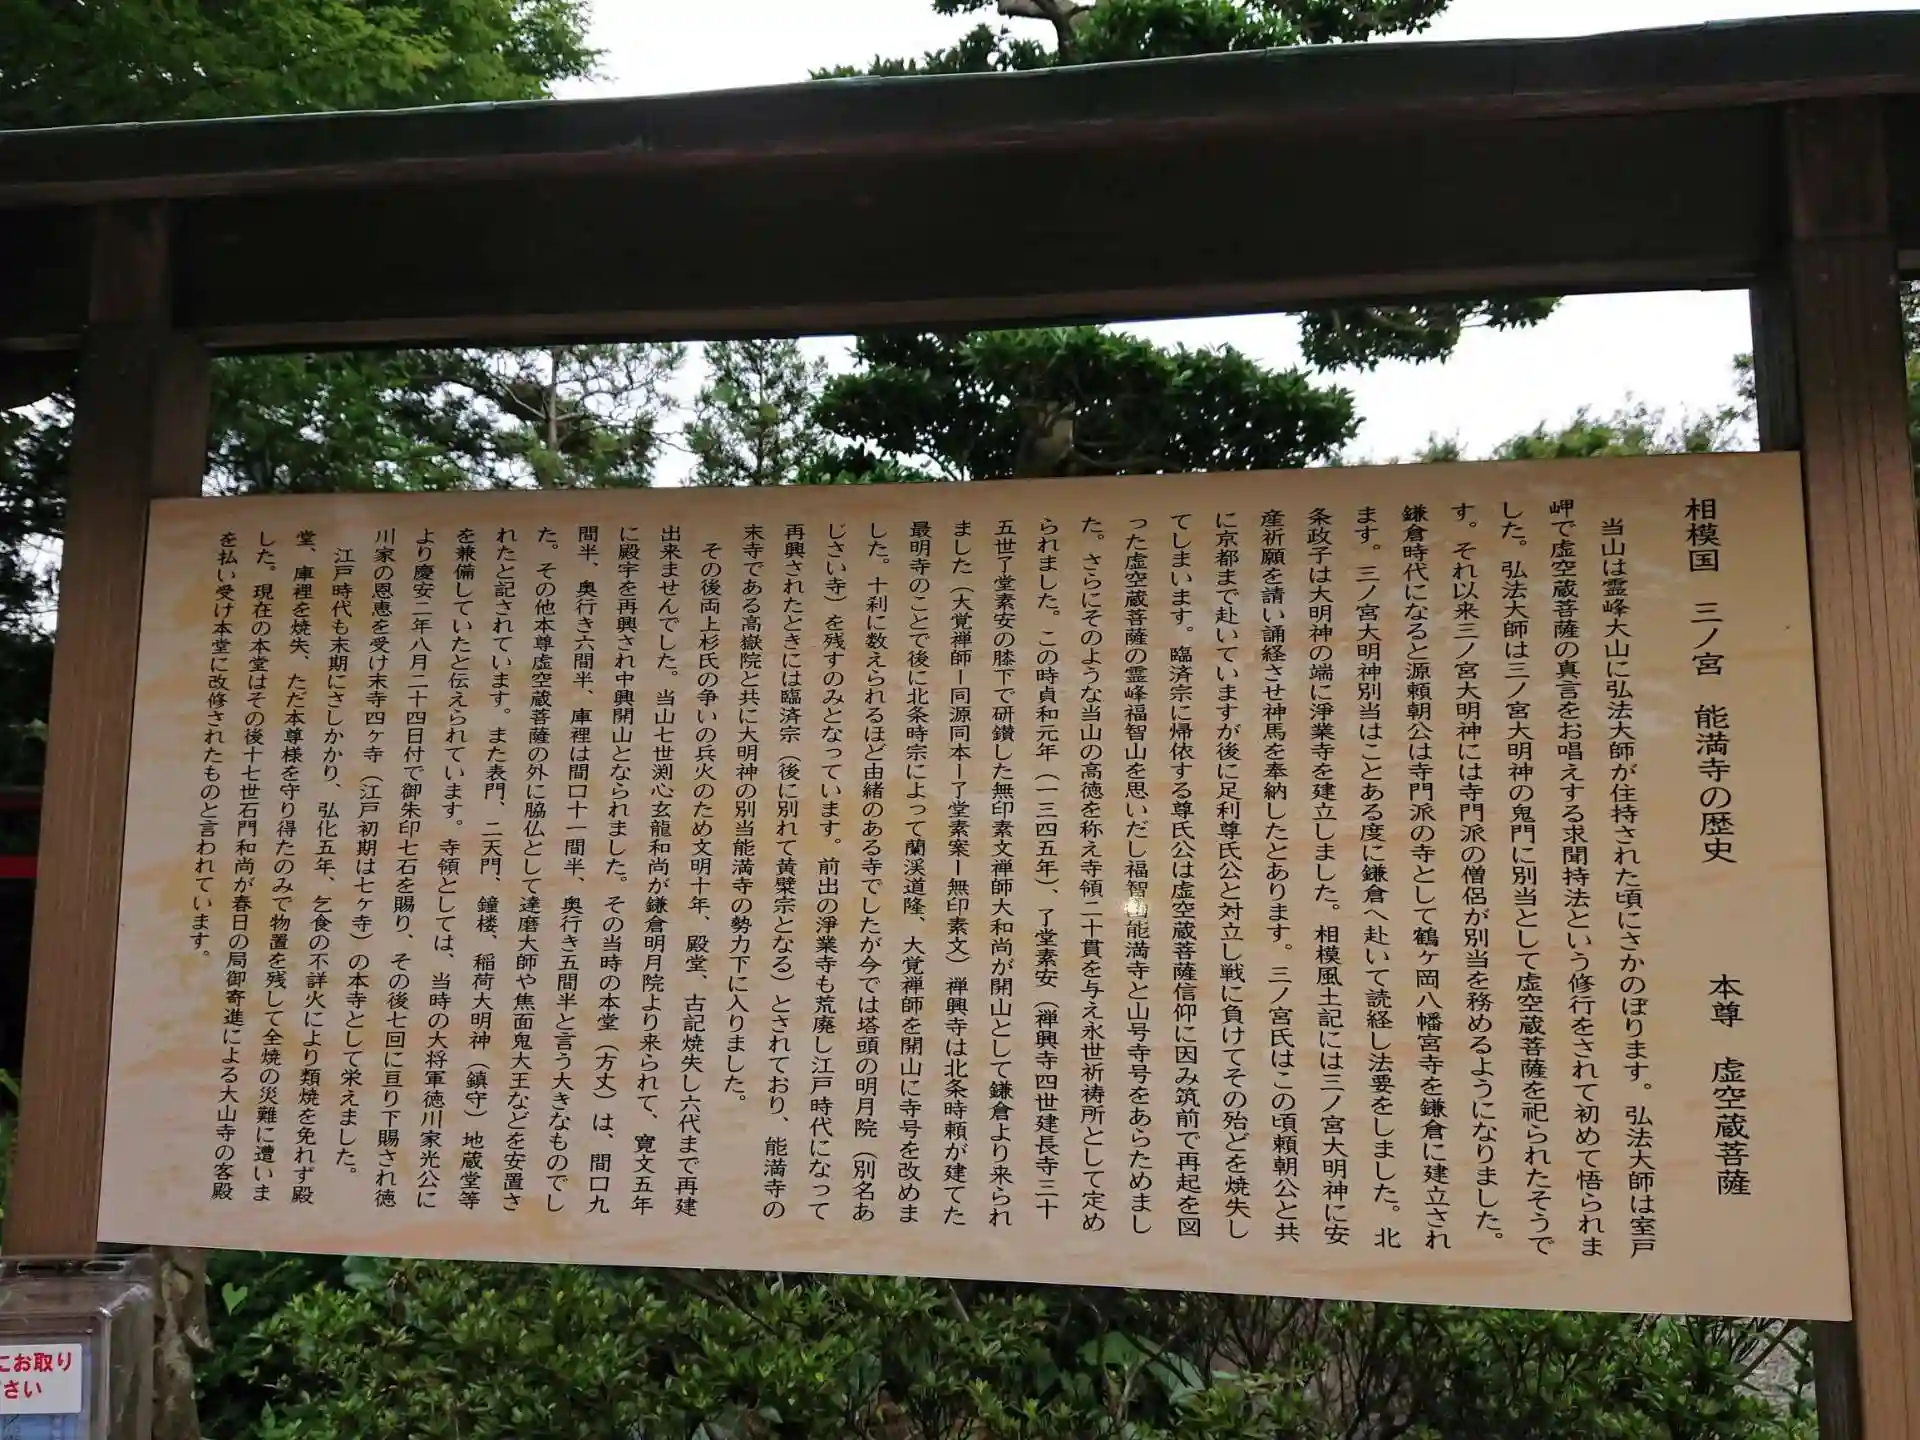 相模国　三ノ宮　能満寺の歴史　　　本尊　虚空蔵菩薩
当山は霊峰大山に弘法大師が住持された頃にさかのぼります。弘法大師は室戸
岬で虚空蔵菩薩の真言をお唱えする求聞持法という修行をされて初めて悟られま
した。弘法大師は三ノ宮大明神の鬼門に別当として虚空蔵菩薩を祀られたそうで
す。それ以来三ノ宮大明神には寺門派の僧侶が別当を務めるようになりました。
鎌倉時代になると源頼朝公は寺門派の寺として鶴ヶ岡八幡宮寺を鎌倉に建立され
ます。三ノ宮大明神別当はことある度に鎌倉へ赴いて読経し法要をしました。北
条政子は大明神の端に淨業寺を建立しました。相模風土記には三ノ宮大明神に安
産祈願を請い誦経させ神馬を奉納したとあります。三ノ宮氏はこの頃頼朝公と共
に京都まで赴いていますが後に足利尊氏公と対立し戦に負けてその殆どを焼失し
てしまいます。臨済宗に帰依する尊氏公は虚空蔵菩薩信仰に因み筑前で再起を図
った虚空蔵菩薩の霊峰福智山を思いだし福智山能満寺と山号寺号をあらためまし
た。さらにそのような当山の高徳を称え寺領二十貫を与え永世祈祷所として定め
られました。この時貞和元年（一三四五年）、了堂素安（禅興寺四世建長寺三十
五世了堂素安の膝下で研鑽した無印素文禅師大和尚が開山として鎌倉より来られ
ました（大覚禅師ー同源同本ー了堂素案ー無印素文）禅興寺は北条時頼が建てた
最明寺のことで後に北条時宗によって蘭渓道隆、大覚禅師を開山に寺号を改めま
した。十刹に数えられるほど由緒のある寺でしたが今では塔頭の明月院（別名あ
じさい寺）を残すのみとなっています。前出の淨業寺も荒廃し江戸時代になって
再興されたときには臨済宗（後に別れて黄檗宗となる）とされており、能満寺の
末寺である高嶽院と共に大明神の別当能満寺の勢力下に入りました。
その後両上杉氏の争いの兵火のため文明十年、殿堂、古記焼失し六代まで再建
出来ませんでした。当山七世渕心玄龍和尚が鎌倉明月院より来られて、寛文五年
に殿宇を再興され中興開山となられました。その当時の本堂（方丈）は、間口九
間半、奥行き六間半、庫裡は間口十一間半、奥行き五間半と言う大きなものでし
た。その他本尊虚空蔵菩薩の外に脇仏として達磨大師や焦面鬼大王などを安置さ
れたと記されています。また表門、二天門、鐘楼、稲荷大明神（鎮守）地蔵堂等
を兼備していたと伝えられています。寺領としては、当時の大将軍徳川家光公に
より慶安二年八月二十四日付で御朱印七石を賜り、その後七回に亘り下賜され徳
川家の恩恵を受け末寺四ヶ寺（江戸初期は七ヶ寺）の本寺として栄えました。
江戸時代も末期にさしかかり、弘化五年、乞食の不詳火により類焼を免れず殿
堂、庫裡を焼失、ただ本尊様を守り得たのみで物置を残して全焼の災難に遭いま
した。現在の本堂はその後十七世石門和尚が春日の局御寄進による大山寺の客殿
を払い受け本堂に改修されたものと言われています。
にお取り
さい